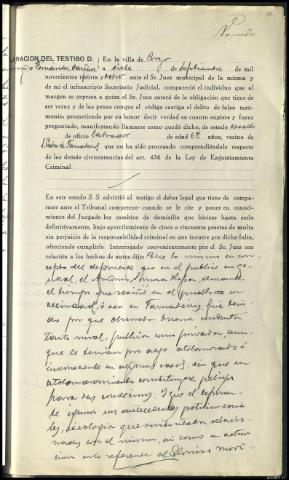 DECLARACION DEL TESTIGO D.
En la villa de
a siete de Septiembre de mil
novecientos treinta y ocho ante el Sr. Juez municipal de la misma y
de mi el infrascripto Secretario Judicial, compareció el individuo que al
margen se expresa a quien el Sr. Juez enteró de la obligación que tiene de
ser veraz y de las penas conque el código castiga el delito de falso testi-
monio, prometiendo por su honor decir verdad en cuanto supiere y fuera
preguntado, manifestando llamarse como queda dicho, de estado casado
de oficio labrador de edad 62 años, vecino de
que no ha sido procesado comprendiéndole respecto
de las demás circunstancias del art. 436 de la Ley de Enjuiciamiento
Criminal
En este estado S. S. advirtió al testigo el deber legal que tiene de compa-
recer ante el Tribunal competente cuando se le cite y poner en conoci-
miento del Juzgado los cambios de domicilio que hiciere hasta serlo
definitivamente, bajo apercibimiento de cinco a cincuenta pesetas de multa
sin perjuicio de la responsabilidad criminal en que incurre por dicha falta,
ofreciendo cumplirlo. Interrogado convenientemente por el Sr. Juez con
relación a los hechos de autos dijo: Para lo mismo en con-
cepto del deponente que en el público en ge-
neral, el Antonio
el tiempo que residió en el
vecindad, o sea en fué teni-
do por que observaba buena conducta
tanto moral, pública como privada aun-
que le tenían por algo atolondrado o
inconsciente en algunas cosas, sin que su
atolondramiento constituyese peligro
para sus convecinos. Y que el deponen-
te ignora sus antecedentes político-socia-
les,
nadas con el mismo, así como su actua-
ción en lo referente al Glorioso Movi-